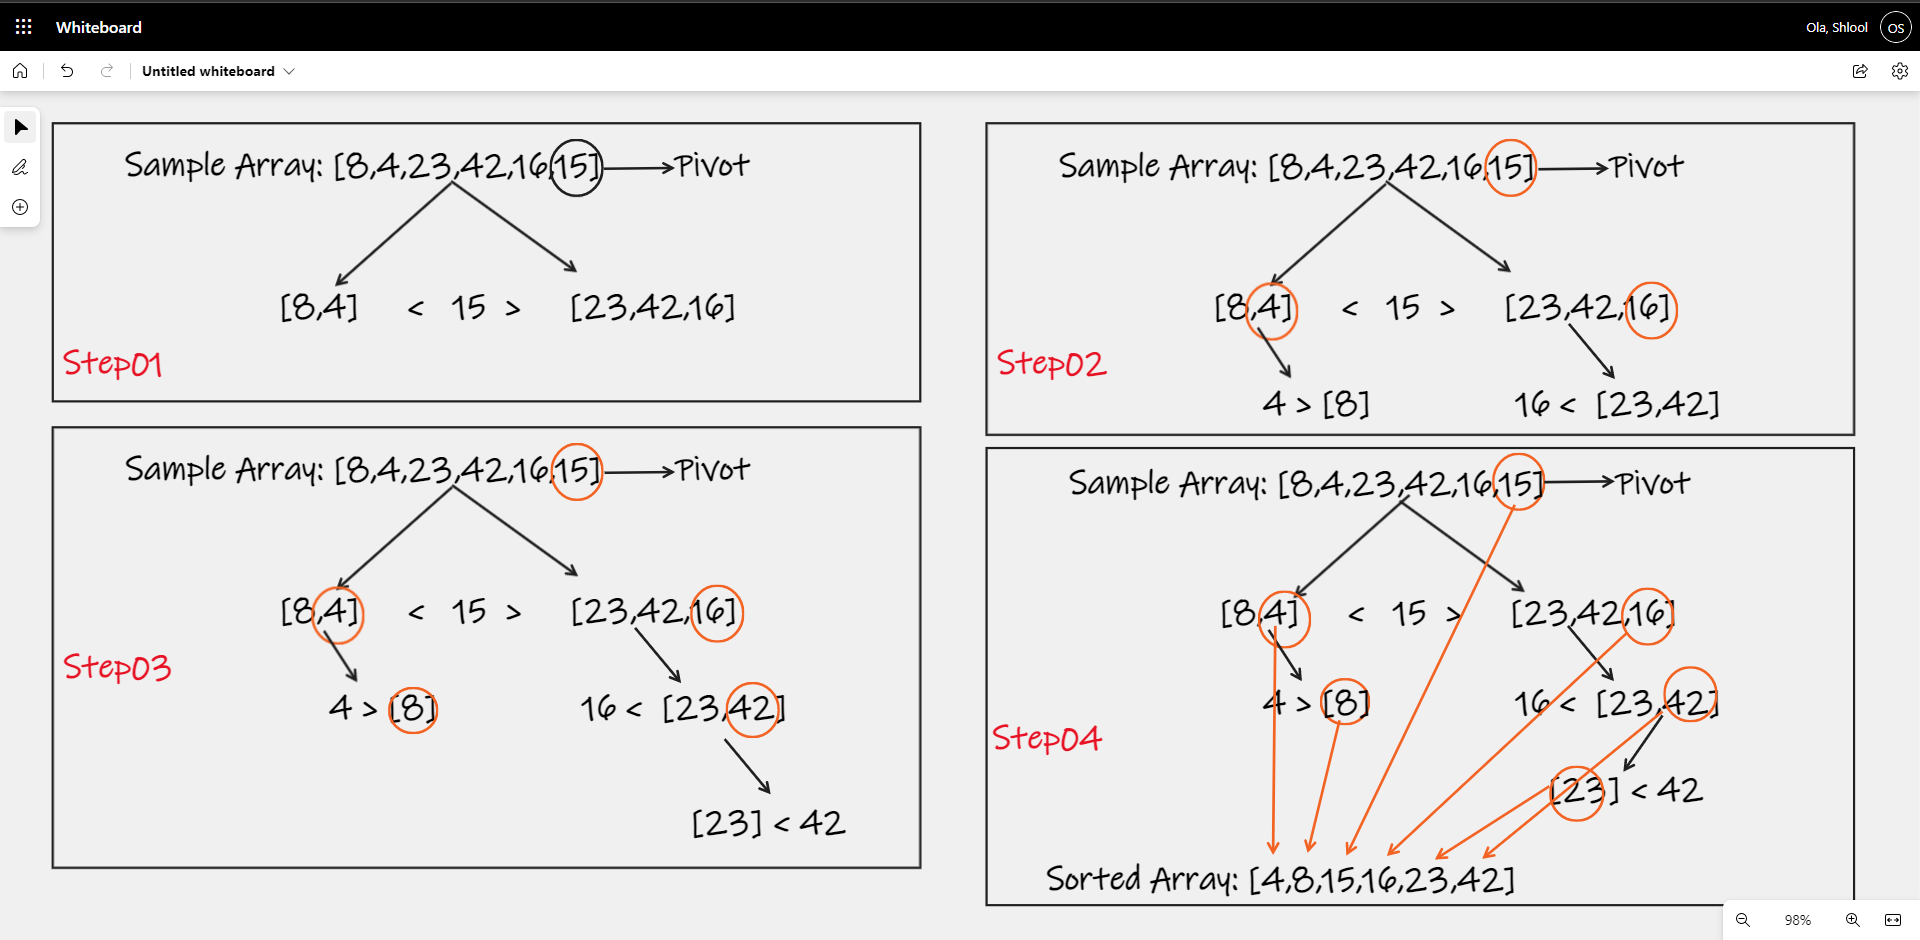 Whiteboard
Ola, Shlool
OS
Untitled whiteboard
Sample Array: [8,4,23,42,16,15] Pivot
[8,4] < 15 > [23,42,16]
Step01
Sample Array: [8,4,23,42,16,15] Pivot
[8,4] < 15 > [23,42,16]
Step02
4 > [8] 16 < [23,42]
Sample Array: [8,4,23,42,16,15] Pivot
[8,4] < 15 > [23,42,16]
Step03
4 > [8] 16 < [23,42]
[23] < 42
Sample Array: [8,4,23,42,16,15] Pivot
[8,4] < 15 > [23,42,16]
4 > [8] 16 < [23,42]
Step04
[23] < 42
Sorted Array: [4,8,15,16,23,42]
98%